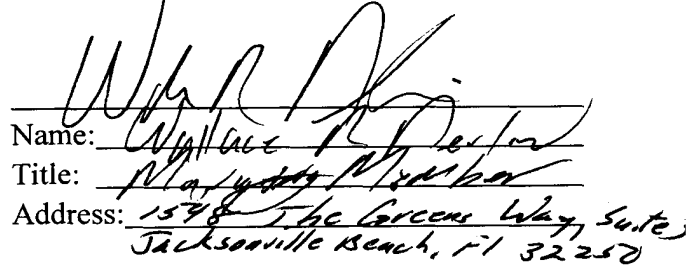 Name: Wallace R Devlin
Title: Managing Member
Address: 1548 The Greens Way, Suite
Jacksonville Beach, Fl 32250